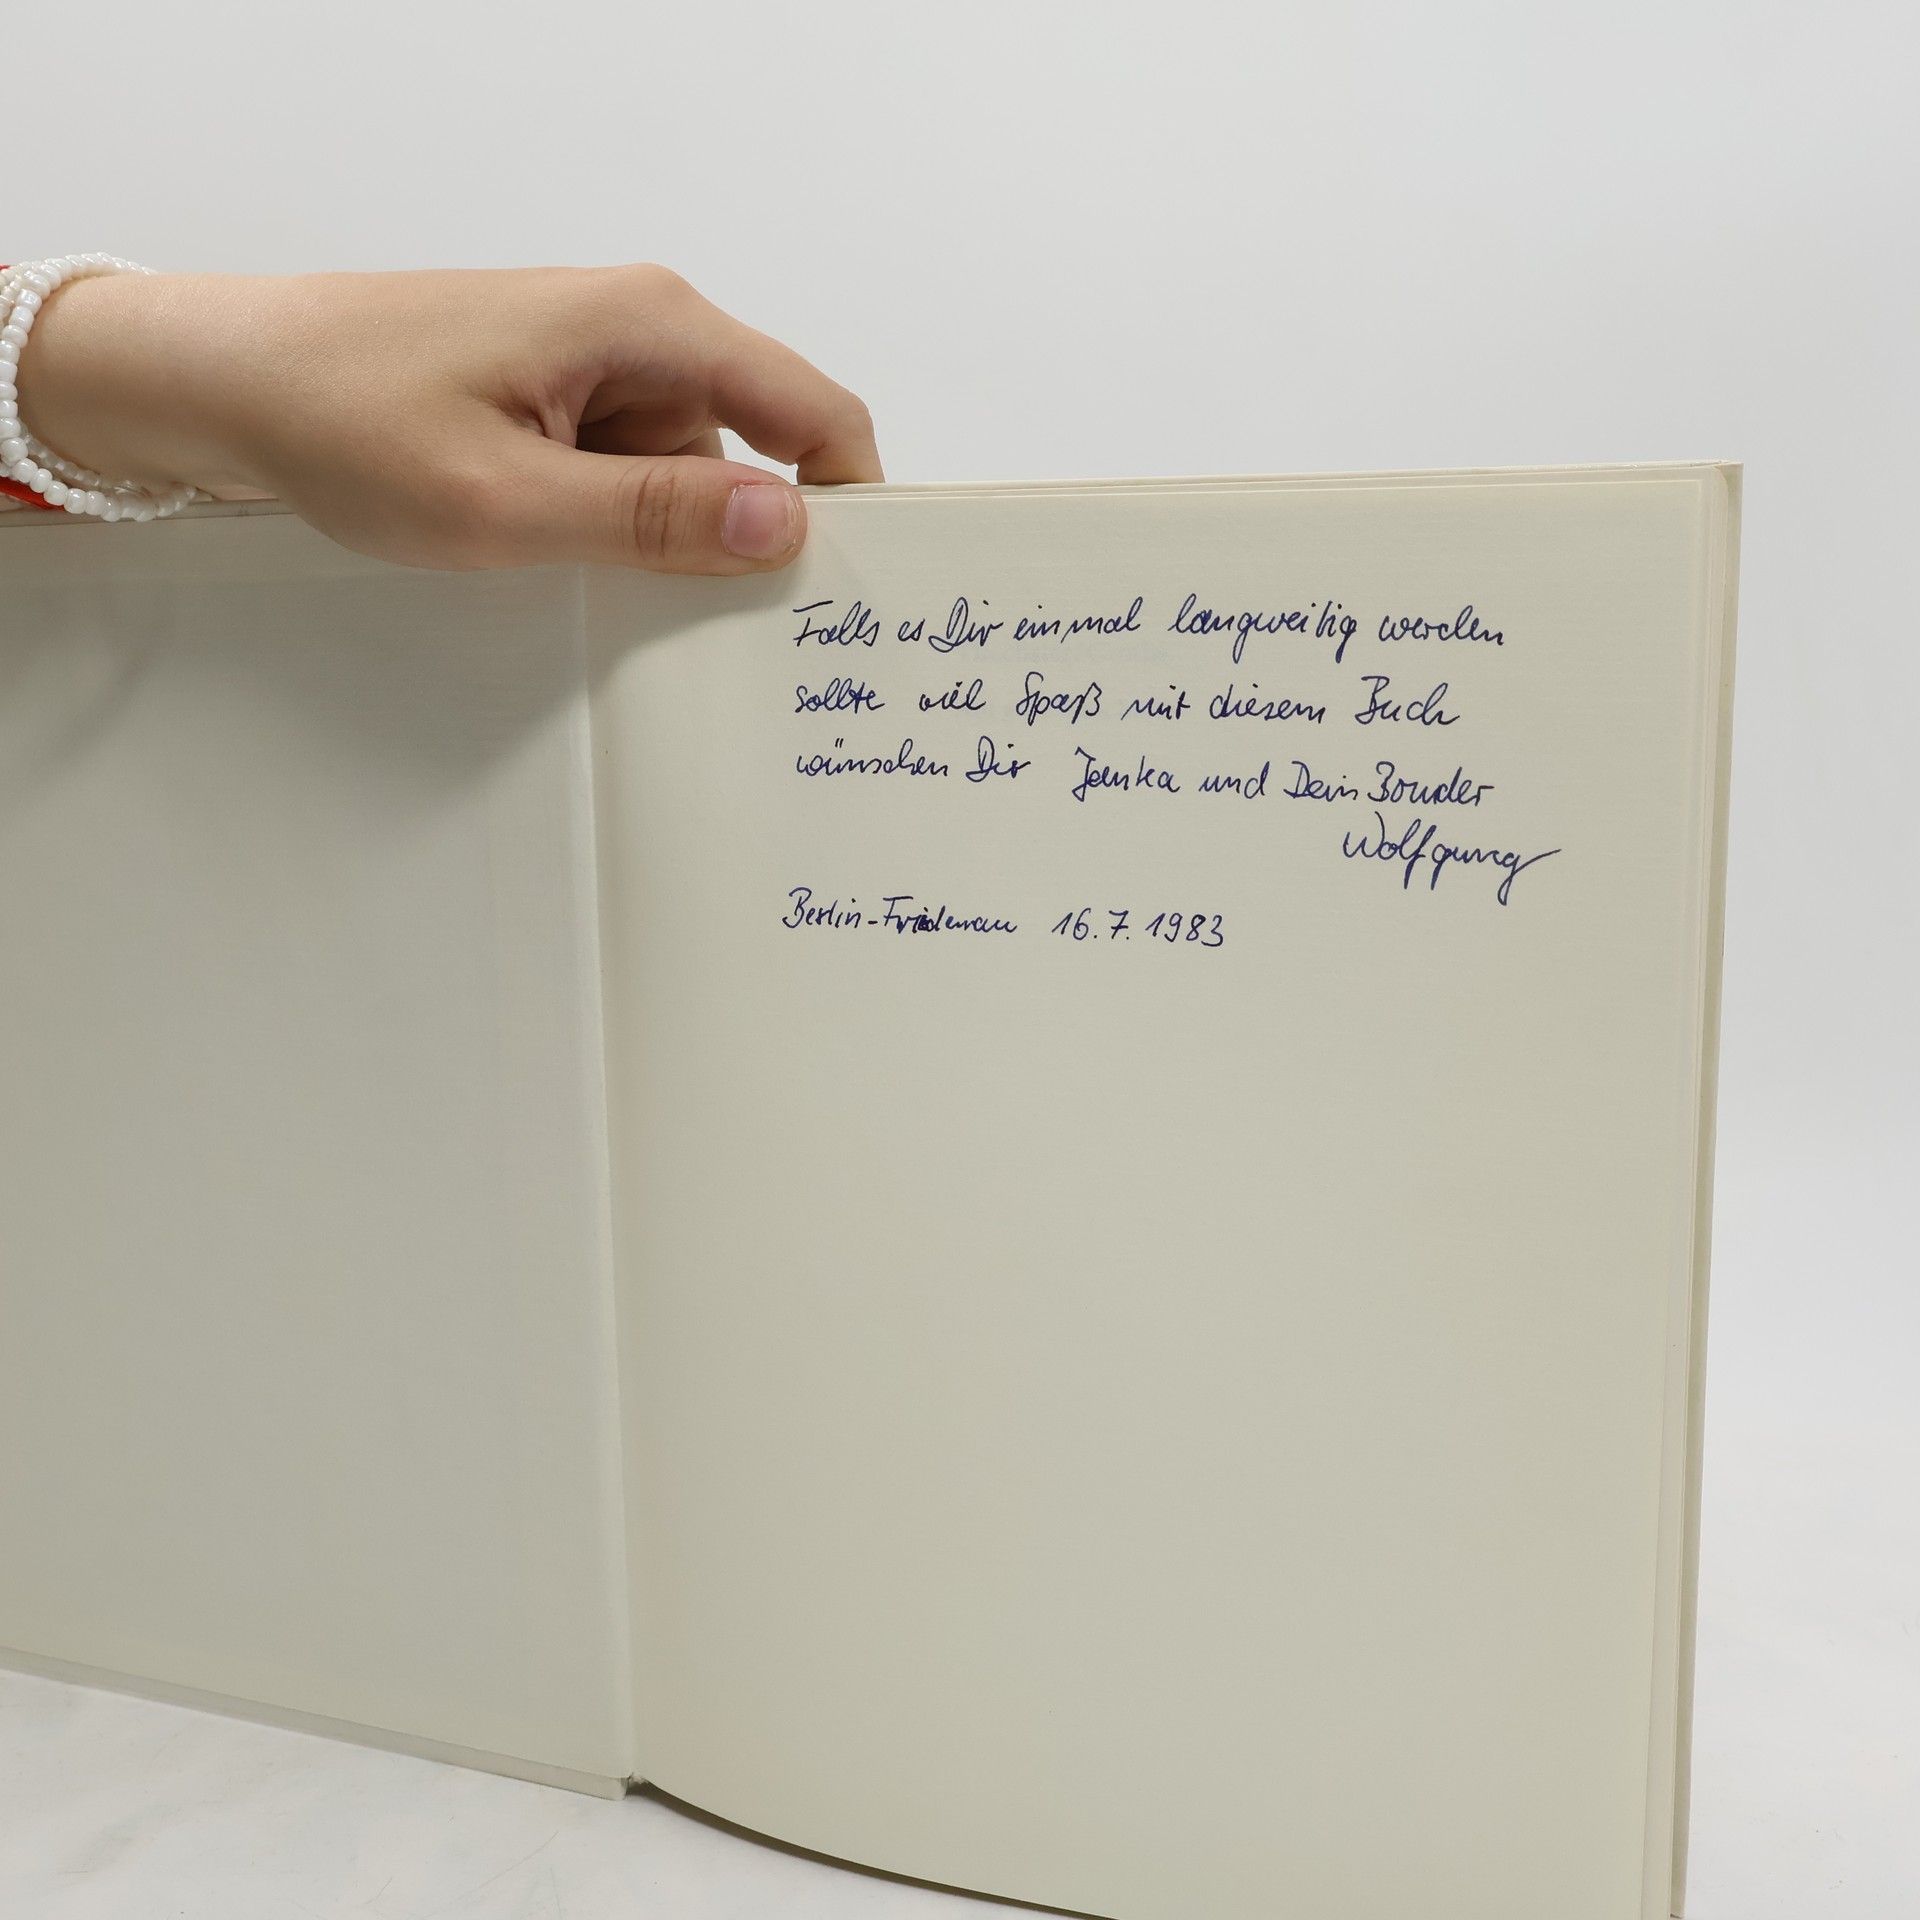 Falls es Dir einmal langweilig werden
sollte viel Spaß mit diesem Buch
wünschen Dir Janka und Dein Bruder
Wolfgang
Berlin-Friedenau 16.7.1983